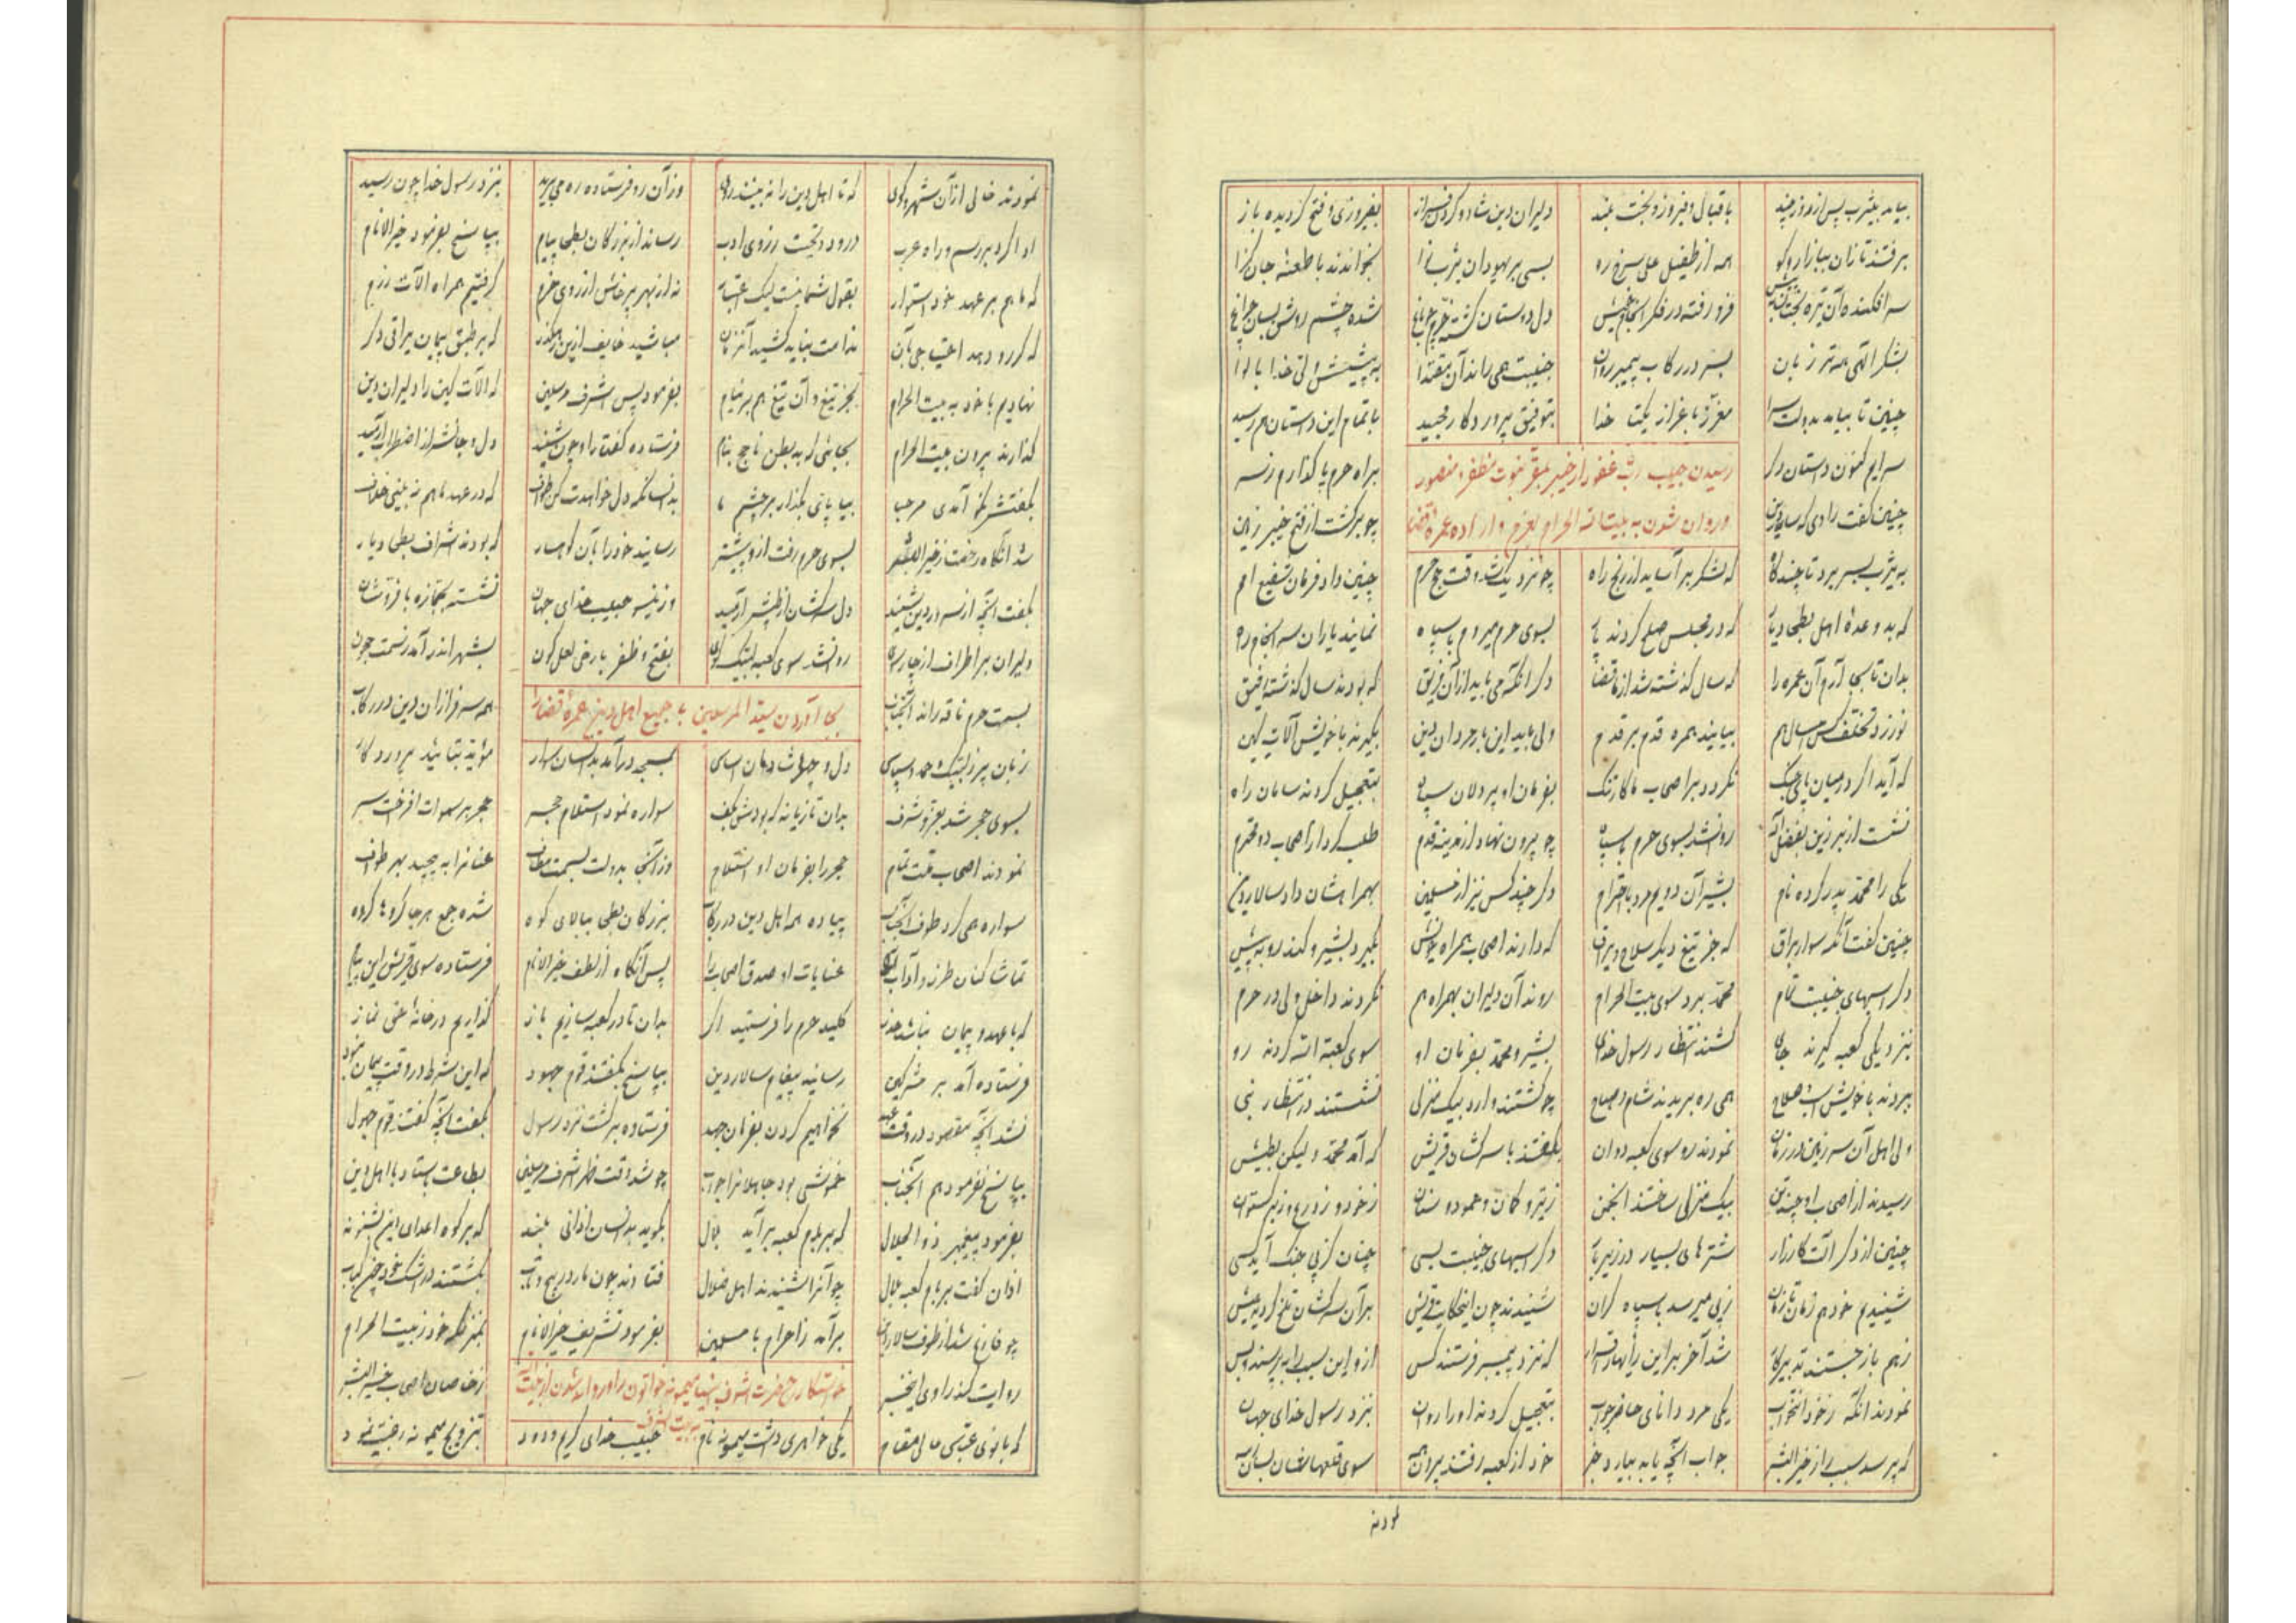 بیامد بیثرب پس از روز چند باقبال و فیروز و بخت بلند دلیران دین شاد و گردن فراز بفیروزی و فتح گردیده باز
برفتند تازان ببازار و کو همه از طفیل علی سرخ رو بسی بر یهودان یثرب بخواندند با طعنه جان گزا
سر افکنده آن تیره بختان به پیش فرو رفته در فکر انجام خویش دل دوستان گشته خرم چو باغ شده چشم روشن بسان چراغ
بشکر الهی همه تر زبان بسر در رکاب پیمبر روان جنیبت همی راند آن مقتدا به پیشش ولی خدا با لوا
چنین تا بیامد بدولت سرا معزز باعزاز یکتا خدا بتوفیق پروردگار مجید باتمام این داستان هم رسید
سرایم کنون داستان دگر براه حرم پا گذارم ز سر
رسیدن حبیب رب غفور از خیبر بمقر نبوت مظفر و منصور
چنین گفت راوی که سالار دین چو برگشت از فتح خیبر زمین
و روان شدن به بیت الله الحرام بعزم و اراده عمره قضا
به یثرب بسر برد تا چندگاه که لشکر بر آساید از رنج راه چو نزدیک شد وقت حج حرم چنین داد فرمان شفیع امم
که بد وعدهٔ اهل بطحی دیار که در مجلس صلح کردند بسوی حرم میروم با سپاه نمایند یاران سرانجام راه
بدان تا بجا آرم آن عمره را که سال گذشته شد از ما قضا دگر آنکه می‌باید از آن فریق که بودند سال گذشته رفیق
نورزد تخلف کس امسال هم بیایند همره قدم بر قدم ولی باید این بار مردان دین بگیرند با خویش آلات کین
که آید اگر در میان پای جنگ نگردد بر اصحاب ما کار تنگ بفرمان او پردلان سپاه بتعجیل کردند سامان راه
نشست از بر زین بفضل اله روان شد بسوی حرم با سپاه چو بیرون نهاد از مدینه قدم طلب کرد از اصحاب دو محترم
یکی را محمد پدر کرده نام بشیر آن دویم مرد با احترام دگر چند کس نیز از مسلمین بهمراهشان داد سالار دین
چنین گفت آنگه سوار براق که جز تیغ دیگر سلاح و یراق که دارند اصحاب همراه خویش بگیرد بشیر و کند رو به پیش
دگر اسبهای جنیبت تمام محمد برد سوی بیت الحرام روند آن دلیران بهمراه هم نگردند داخل ولی در حرم
بنزدیکی کعبه گیرند جای کشند انتظار رسول خدای بشیر و محمد بفرمان او سوی کعبة الله کردند رو
ببردند با خویش اسب و سلاح همی ره بریدند شام و صباح چو گشتند وارد بیک منزلی نشستند در انتظار نبی
ولی اهل آن سرزمین در زمان نمودند رو سوی کعبه دوان بگفتند با سرکشان قریش که آمد محمد ولیکن بطیش
رسیدند از اصحاب او چند تن بیک منزلی ساختند انجمن ز تیر و کمان و عمود و سنان ز خود و ز درع و ز برگستوان
چنین از دگر آلت کارزار شترهای بسیار در زیر بار دگر اسبهای جنیبت بسی چنان کز پی جنگ آید کسی
شنیدیم خود هم زمان تا زمان ز پی میرسد با سپاه گران شنیدند چون این حکایت قریش بر آن سرکشان تلخ گردید عیش
ز هم باز جستند تدبیر کار شد آخر بر این رأیها قرار که نزد پیمبر فرستند کس از او این سبب را بپرسند و بس
نمودند آنگه ز خود انتخاب یکی مرد دانای حاضر جواب بتعجیل کردند او را روان بنزد رسول خدای جهان
که پرسد سبب را ز خیر البشر جواب آنچه یابد بیارد خبر خود از کعبه رفتند بیرون همه سوی قلعهاشان بسان
نمودند
نمودند خالی از آن شهر و کوی که تا اهل دین را نه بینند روی وز آن رو فرستاده ره می‌برید بنزد رسول خدا چون رسید
ادا کرد بر رسم و راه عرب درود و تحیت ز روی ادب رساند از بزرگان بطحی پیام بپاسخ بفرمود خیر الانام
که ما هم بر عهد خود استوار بقول شما نیست لیک اعتبار نه از بهر پرخاش از روی حزم گرفتیم همراه آلات رزم
که گر رو دهد احتیاجی بآن ندامت نباید کشید آنزمان مباشید خایف ازین رهگذر که بر طبق پیمان یراق دگر
نهادیم با خود به بیت الحرام بجز تیغ و آن تیغ هم در نیام بفرمود پس اشرف مرسلین که آلات کین را دلیران دین
گذارند بیرون بیت الحرام بجائی که بد بطن ناجح بنام فرستاده گفتار او چون شنید دل و جانش از اضطراب آرمید
بگفتش نکو آمدی مرحبا بیا پای بگذار بر چشم ما بدانسانکه دل خواهدت کن طواف که در عهد ما هم نه بینی خلاف
شد آنگاه رخصت ز خیر البشر بسوی حرم رفت از و پیشتر رسانید خود را بآن کوهسار که بودند اشراف بطحی دیار
بگفت آنچه از سرور دین شنید دل سرکشان از طپش آرمید وزینسو حبیب خدای جهان نشسته بجمازه با فر و شان
دلیران بر اطراف از چار سوی روان شد سوی کعبه لبیک گوی بفتح و ظفر با رخ لعل گون بشهر اندر آمد
بسمت حرم ناقه راند آنجناب همه سرفرازان دین در رکاب
بجا آوردن سید المرسلین با جمیع اهل دین عمره قضا را
زبان پر ز لبیک و حمد و سپاس بمسجد در آمد بدانسان سوار مؤید بتائید پروردگار
بسوی حجر شد بعز و شرف بدان تازیانه که بودش بکف سواره نمود استلام حجر حجر بر سموات افراخت سر
نمودند اصحاب ملت تمام حجر را بفرمان او استلام وز آنجا بدولت بسمت مطاف عنانرا به پیچید بهر طواف
سواره همی کرد طوف آنجناب پیاده همه اهل دین در رکاب بزرگان بطحی ببالای کوه شده جمع هر جا گروها گروه
تماشا کنان طرز و آداب عنایات او صدق اصحاب را پس آنگاه از لطف خیر الانام فرستاده سوی قریش این پیام
که با عهد و پیمان نباشد خلاف کلید حرم را فرستید اگر بدان تا در کعبه سازیم باز گذاریم در خانهٔ حق نماز
فرستاده آمد بر مشرکین رسانید پیغام سالار دین بپاسخ بگفتند قوم جهود که این شرط در وقت پیمان نبود
نشد آنچه مقصود در وقت عهد نخواهیم کردن بفرمان جهد فرستاده برگشت نزد رسول بگفت آنچه گفتند قوم جهول
بپاسخ نفرمود هم آنجناب خموشی بود جاهلانرا جواب چو شد وقت ظهر اشرف مرسلین بطاعت باستاد با اهل دین
بفرمود پیغمبر ذو الجلال که بر بام کعبه بر آید بلال بگوید بدانسان اذانی بلند که بر کوه اعدای دین بشنوند
اذان گفت بر بام کعبه بلال چو آنرا شنیدند اهل ضلال فتادند چون مار در پیچ و تاب بگشتند در اشک خود چون کباب
چو فارغ شد از طوف سالار دین بر آمد ز احرام با مسلمین بفرمود تشریف خیر الانام بمنزلگه خود ز بیت الحرام
روایت کند راوی این خبر ز خاصان اصحاب خیر البشر
خواستگاری حضرت اشرف انبیا میمونه خاتون را و روانه شدن از
که بانوی عباس عالی مقام یکی خواهری داشت میمونه نام حبیب خدای کریم و ودود بتزویج میمونه رغبت نمود